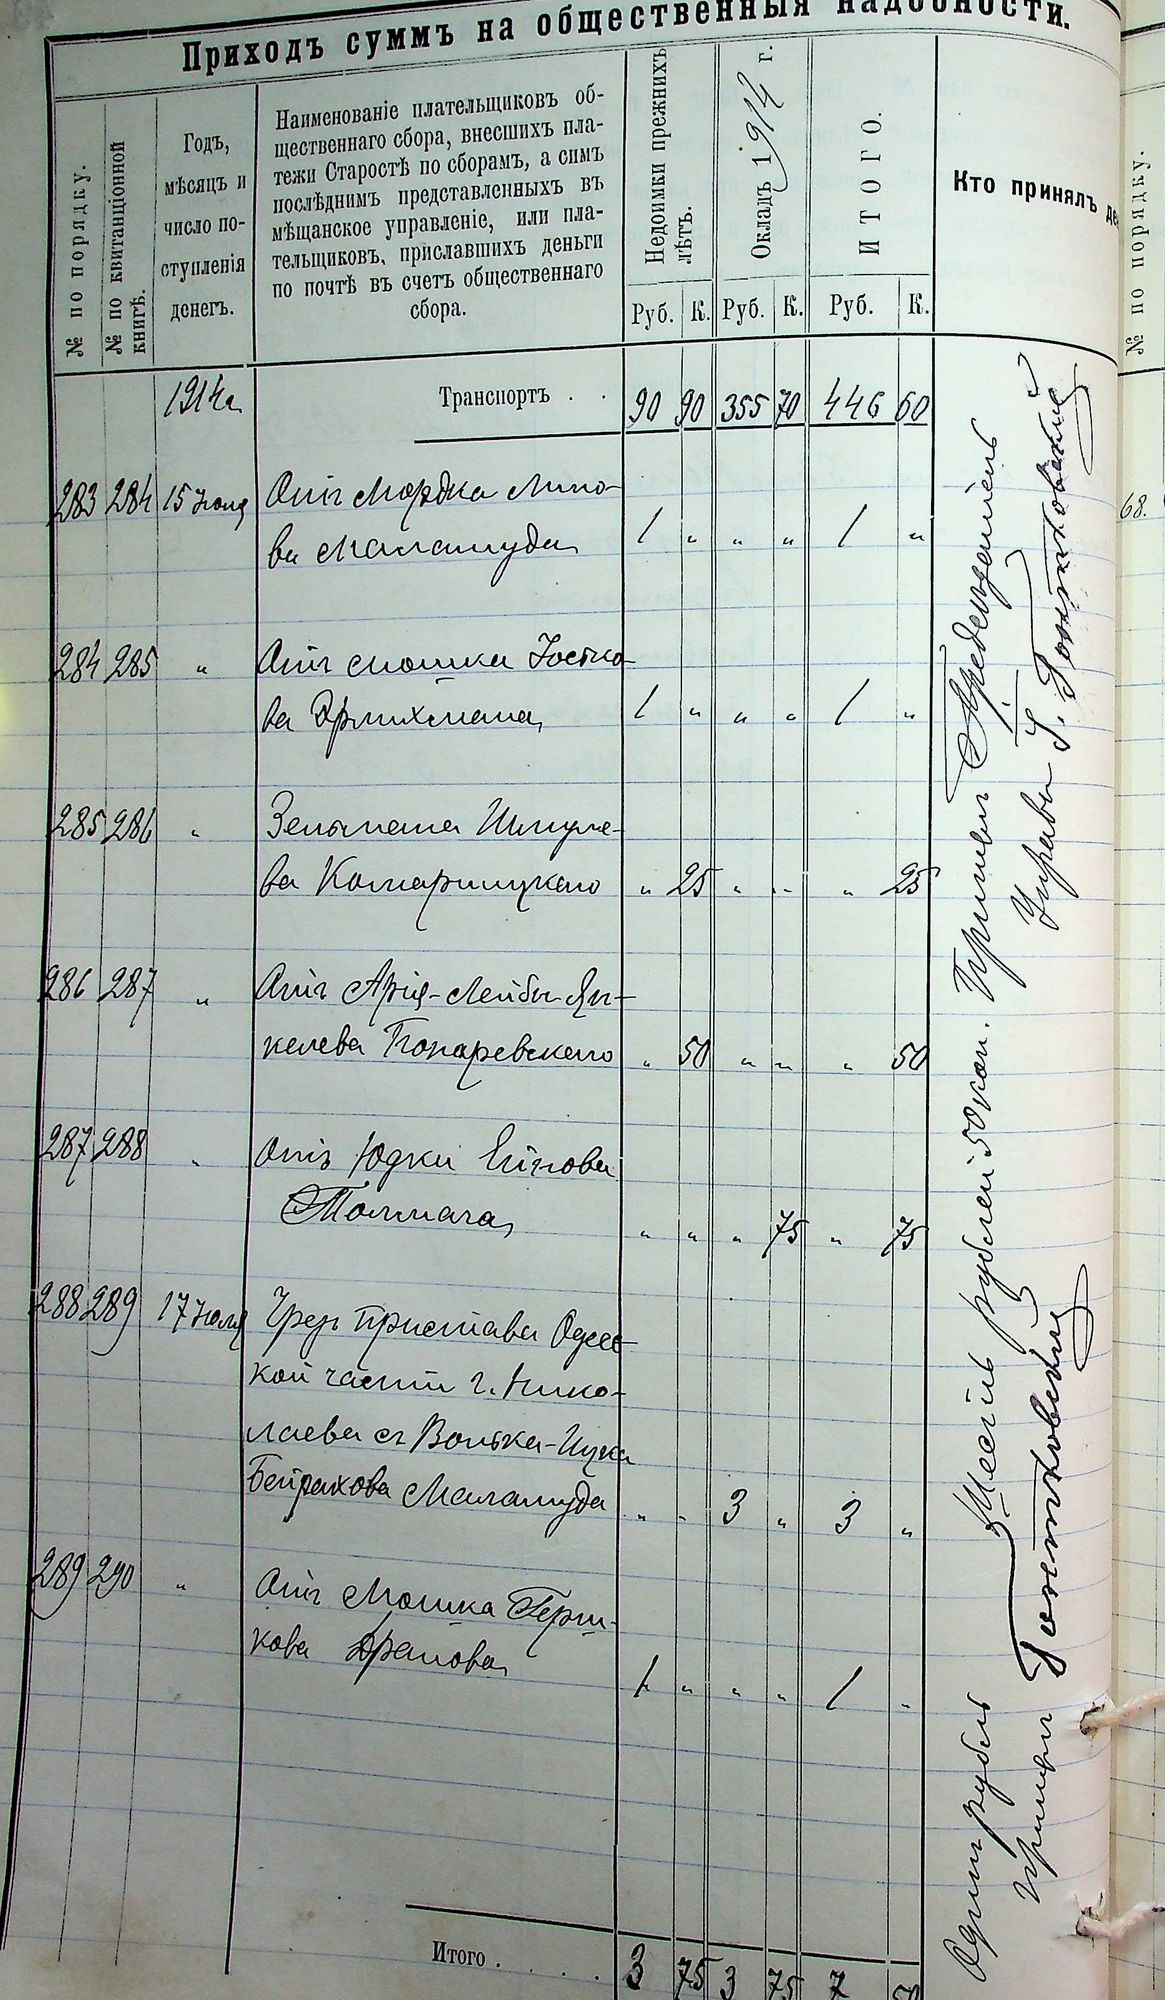 Приходъ суммъ на общественныя надобности.
№ по порядку.
№ по квитанціонной
книгѣ.
Годъ,
мѣсяцъ и
число по-
ступленія
денегъ.
Наименованіе плательщиковъ об-
щественнаго сбора, внесшихъ пла-
тежи Старостѣ по сборамъ, а симъ
послѣднимъ представленныхъ въ
мѣщанское управленіе, или пла-
тельщиковъ, приславшихъ деньги
по почтѣ въ счетъ общественнаго
сбора.
Недоимки прежнихъ
лѣтъ.
Окладъ 1914 г.
ИТОГО.
Кто принялъ де
Руб. К. Руб. К. Руб. К.
1914 г. Транспортъ . . 90 90 355 70 446 60
283 284 15 Іюля Отъ Мордка Лино-
ва Маламуда 1 " " " 1 "
284 285 " Отъ Мошка Іосько-
ва Эрлихмана 1 " " " 1 "
285 286 " Зельмана Шмуле-
ва Комарницкаго " 25 " " " 25
286 287 " Отъ Арія-Лейбы Ян-
келева Понаревскаго " 50 " " " 50
287 288 " Отъ Юдки
Толмача " " " 75 " 75
288 289 17 Іюля Чрез Пристава Одесс-
кой части г. Нико-
лаева съ Волька-Ицка
Бейрахова Маламуда " " 3 " 3 "
289 290 " Отъ Мошка Герш-
кова 1 " " " 1 "
Итого . . . . 3 75 3 75 7
Шесть рублей 50 коп. Принялъ Предсѣдатель
Управы
Одинъ рубль
принялъ
№ по порядку.
68.